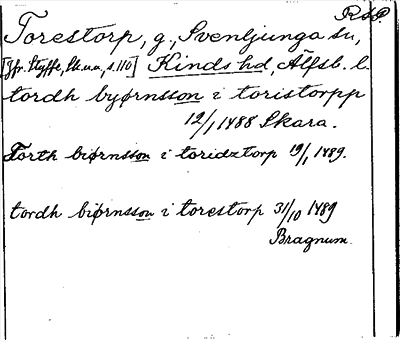 RAP.
Torestorp, g., Svenljunga sn,
[Jfr. Styffe, Sk.u.a, s. 110] Kinds hd, Älfsb. l.
tordh byørnsson i toristorpp
12/1 1488 Skara.
Torth biørnsson i toridztorp 19/1 1489.
tordh biørnsson i torestorp 31/10 1489
Bragnum.